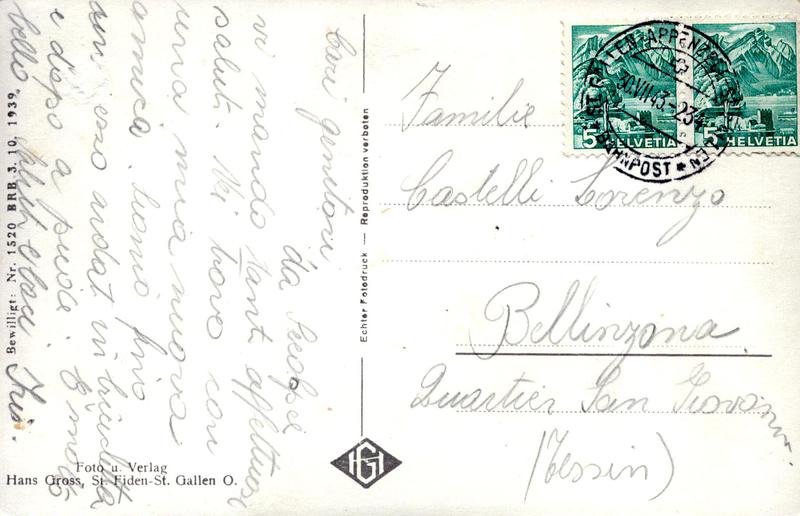 Cari genitori
da
vi mando tanti affettuosi
saluti. Mi trovo con
una mia nuova
amica. siamo fino
andat in
e dopo a piedi. E molto
bello.
Familie
Castelli Lorenzo
Bellinzona
Quartier San Giovanni
(Tessin)
ST. GALLEN-APPENZELL
30.VII.43.-23
BAHNPOST
5 HELVETIA
5 HELVETIA
Echter Fotodruck — Reproduktion verboten
Bewilligt: Nr. 1520 BRB 3. 10. 1939.
HG
Foto u. Verlag
Hans Gross, St. Fiden-St. Gallen O.